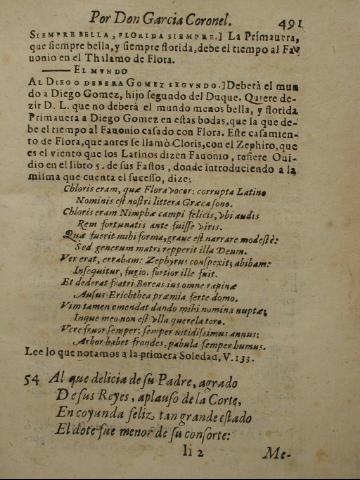 Por Don Garcia Coronel. 491
SIEMPRE BELLA, FLORIDA SIEMPRE.] La Primauera,
que siempre bella, y siempre florida, debe el tiempo al Fa-
uonio en el Thalamo de Flora.
EL MVNDO
AL DIEGO DEBERA GOMEZ SEGVNDO.] Deberà el mun
do a Diego Gomez, hijo segundo del Duque. Quiere de-
zir D. L. que no deberà el mundo menos bella, y florida
Primauera a Diego Gomez en estas bodas, que la que de-
be el tiempo al Fauonio casado con Flora. Este casamien-
to de Flora, que antes se llamò Cloris, con el Zephiro, que
es el viento que los Latinos dizen Fauonio, refiere Oui-
dio en el libro 5. de sus Fastos, donde introduciendo a la
misma que cuenta el sucesso, dize:
Chloris eram, quæ Flora vocor: corrupta Latino
Nominis est nostri littera Græca sono.
Chloris eram Nimphæ campi felicis, vbi audis
Rem fortunatis ante fuisse viris.
Quæ fuerit mihi forma, graue est narrare modestè:
Sed generum matri repperit illa Deum.
Ver erat, errabam: Zephyrus conspexit, abibam:
Insequitur, fugio. fortior ille fuit.
Et dederat fratri Boreas ius omne rapinæ
Ausus Erichthea præmia ferte domo.
Vim tamen emendat dando mihi nomina nuptæ:
Inque meo non est vlla querela toro.
Vere fruor semper: semper nitidissimus annus:
Arbor habet frondes, pabula semper humus.
Lee lo que notamos a la primera Soledad, V. 133.
54 Al que delicia de su Padre, agrado
De sus Reyes, aplauso de la Corte,
En coyunda feliz, tan grande estado
El dote fue menor de su consorte:
Ii 2 Me-